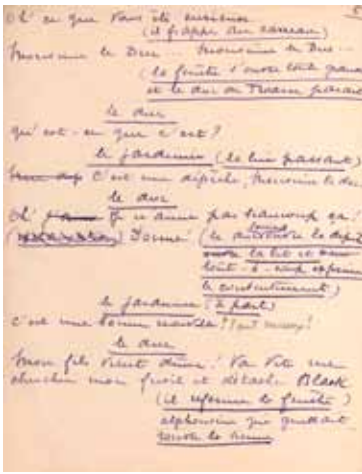 Oh! ce que vous êtes curieuse
(il frappe au carreau)
Monsieur le Duc... Monsieur le Duc...
(la fenêtre s'ouvre toute grande
et le duc de paraît
le duc
qu'est-ce que c'est?
le jardinier (le lui passant)
C'est une dépêche, Monsieur le duc
le duc
Oh! Je n'aime pas beaucoup ça.
Donne! (le duc ouvre la dépêche
la lit et
tout-à-coup exprime
le contentement)
le jardinier (à part)
C'est une bonne nouvelle? Tant mieux!
le duc
Mon fils vient dîner! Va vite me
chercher mon fusil et détache Black
(il referme la fenêtre)
alphonsine qui
rentre